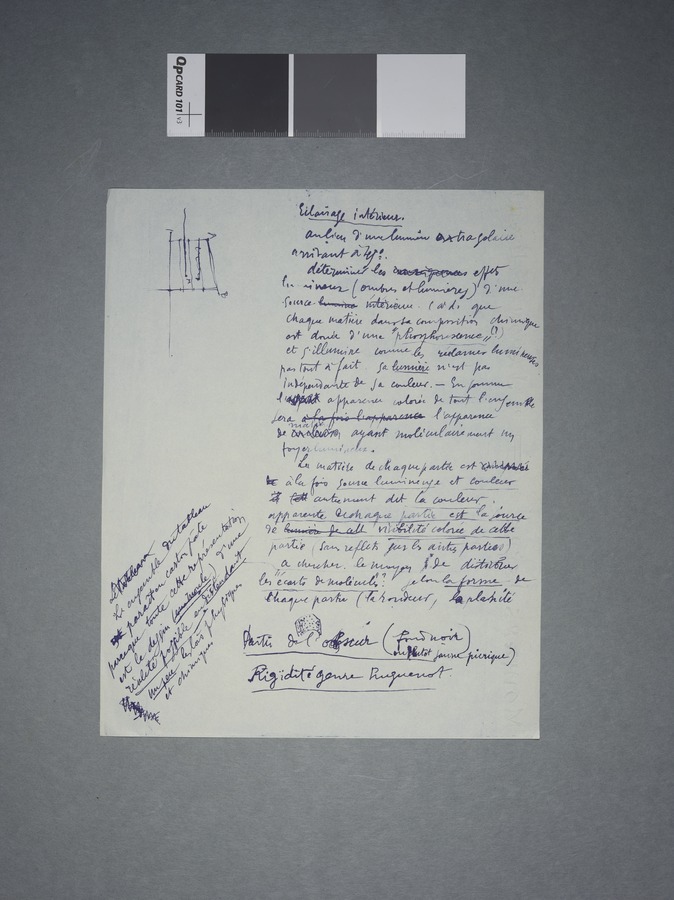 QpCARD 101 v3
Eclairage intérieur.
au lieu d'une lumière extra solaire
arrivant à 45°.
déterminer les effets
lumineux (ombres et lumières) d'une
source lumière intérieure. c.à.d. que
chaque matière dans sa composition chimique
est douée d'une "phosphorescence" (?)
et s'illumine comme les réclames lumineuses
pas tout à fait. Sa lumière n'est pas
indépendante de sa couleur. — En somme
l'aspect apparence colorée de tout l'ensemble
sera à la fois l'apparence l'apparence
de matière ayant moléculairement un
foyer lumineux.
La matière de chaque partie est
à la fois source lumineuse et couleur
autrement dit la couleur
apparente de chaque partie est la source
de lumière de cette visibilité colorée de cette
partie (sans reflets sur les autres parties)
à chercher. le moyen de distribuer
les "écarts de molécule" selon la forme de
chaque partie (la rondeur, la platité
Partir de l'obscur (fond noir
ou plutôt jaune picrique)
Rigidité genre Huguenot.
Le tableau
Le ensemble du tableau
paraît en carton pâte
parceque toute cette représentation
est le dessin (un moule) d'une
réalité possible en distendant
un peu les lois physiques
et chimiques